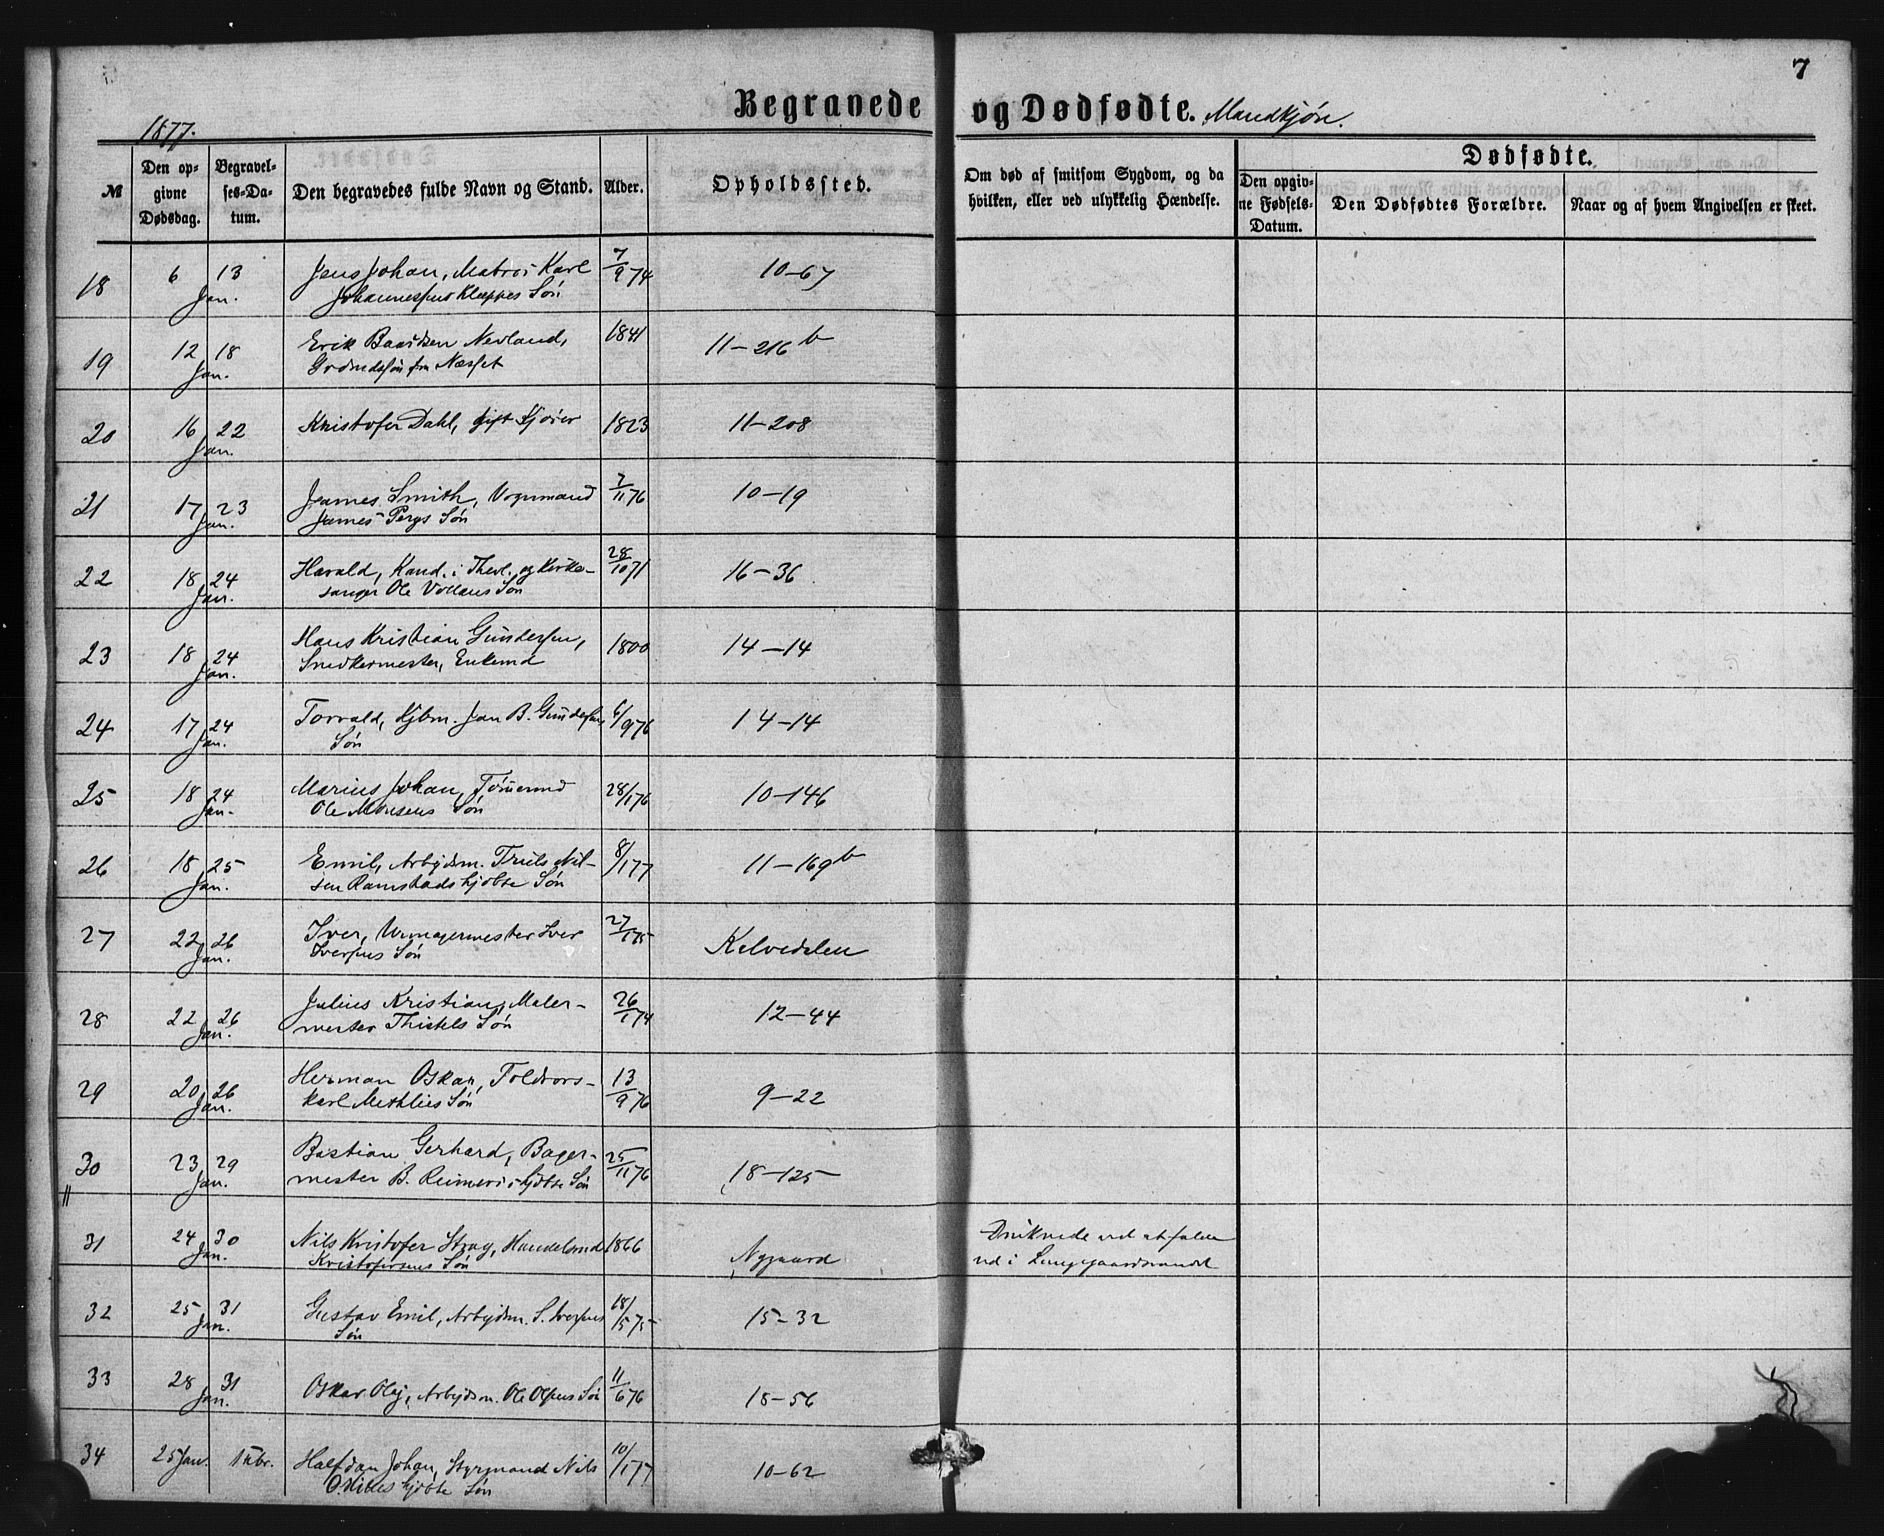 7
Begravede og Dødfødte. Mandkjøn.
1877.
№
Den opgivne Dødsdag.
Begravelses-Datum.
Den begravedes fulde Navn og Stand.
Alder.
Opholdssted.
Om død af smitsom Sygdom, og da hvilken, eller ved ulykkelig Hændelse.
Dødfødte.
Den opgivne Fødsels-Datum.
Den Dødfødtes Forældre.
Naar og af hvem Angivelsen er skeet.
18 6 13 Jan. Jens Johan, Matros Karl 7/9 74 10-67
Johannesens Klæppes Søn
19 12 18 Jan. Erik Baardsen Nevland, 1841 11-216 b
Grdmdssøn fra Næsset
20 16 22 Jan. Kristofer Dahl, gift Kjører 1823 11-208
21 17 23 Jan. James Smith, Vognmand 7/11 76 10-19
James Pergs Søn
22 18 24 Jan. Harald, Kand. i Theol. og Kirke- 28/10 71 16-36
sanger Ole Vollans Søn
23 18 24 Jan. Hans Kristian Gundersen, 1800 14-14
Snedkermester, Enkemd
24 17 24 Jan. Torvald, Kjbm. Jan B. Gundersens 6/9 76 14-14
Søn
25 18 24 Jan. Marius Johan, Tømrmd 28/1 76 10-146
Ole Monsens Søn
26 18 25 Jan. Emil, Arbejdsm. Truls Nil- 8/1 77 11-169 b
sen Ramstads hjdbte Søn
27 22 26 Jan. Iver, Urmagermester Iver 27/1 75 Kalvedalen
Iversens Søn
28 22 26 Jan. Julius Kristian, Maler- 26/1 74 12-44
mester Thistels Søn
29 20 26 Jan. Herman Oskar, Toldrors- 13/9 76 9-22
karl Methlies Søn
30 23 29 Jan. Bastian Gerhard, Bager- 25/11 76 18-125
mester B. Reimers's hjdbte Søn
31 24 30 Jan. Nils Kristofer Strag, Handelsmd 1866 Nygaard Druknede ved at falde
Kristofersens Søn ud i Lungegaardsvandet
32 25 31 Jan. Gustav Emil, Arbejdsm. S. Iversens 18/5 75 15-32
Søn
33 28 31 Jan. Oskar Olaj, Arbejdsm. Ole Olsens Søn 11/6 76 18-56
34 25 Jan. 1 Febr. Halfdan Johan, Styrmand Nils 10/1 77 10-62
hjdbte Søn